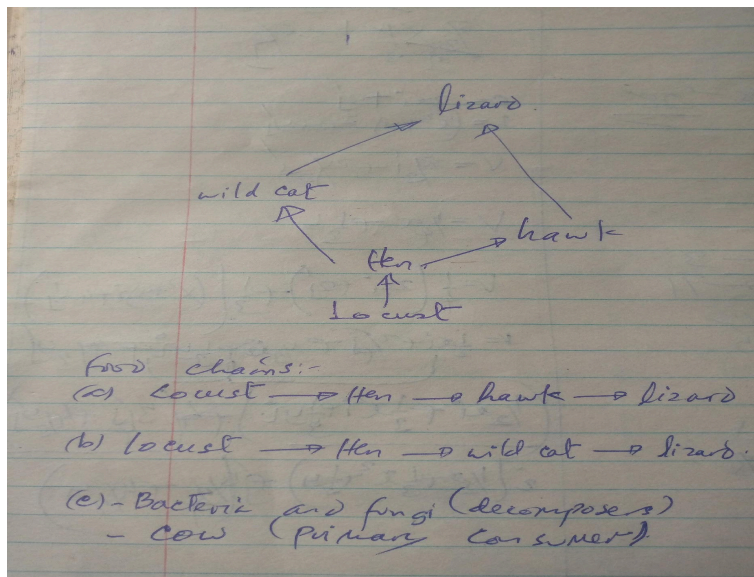 lizard.
wild cat
hawk
Hen
Locust
Food chains:-
(a) Locust → Hen → hawk → lizard
(b) Locust → Hen → wild cat → lizard.
(c) - Bacteria and fungi (decomposers)
- Cow (primary consumer).